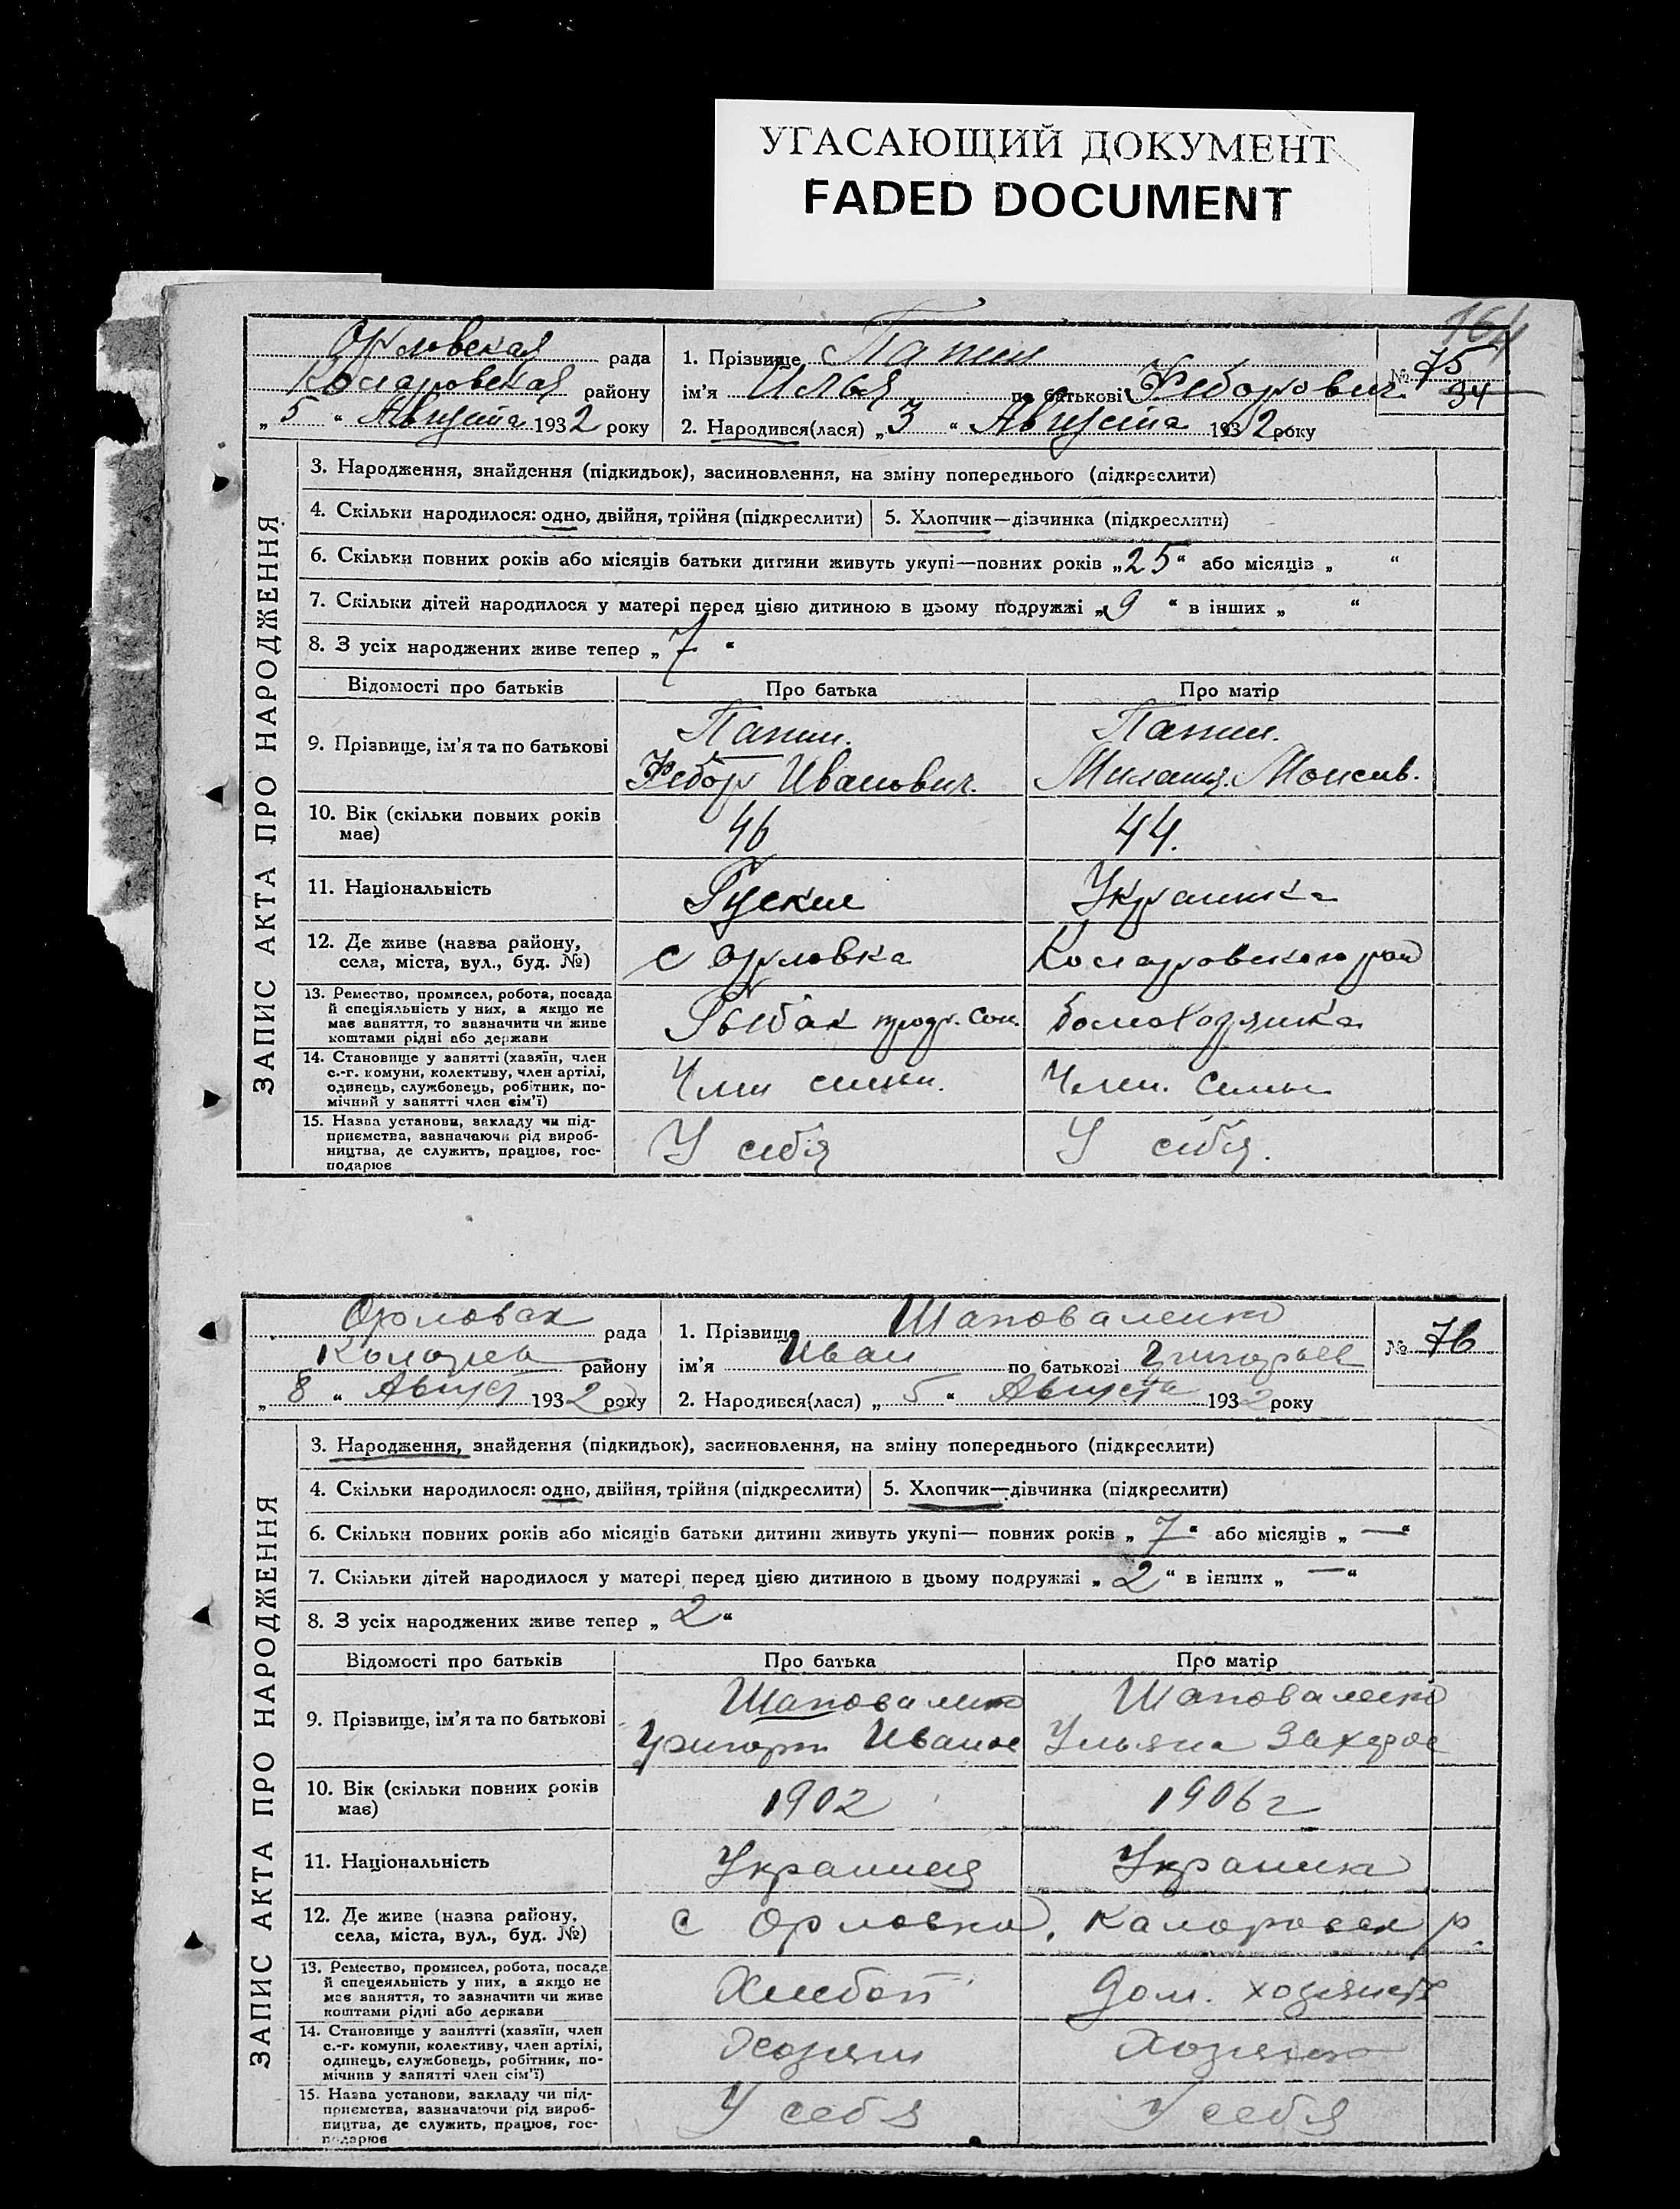 УГАСАЮЩИЙ ДОКУМЕНТ
FADED DOCUMENT
164
Орловская рада
Комаровская району
„5“ Августа 1932 року
1. Прізвище Папин
ім’я Илья по батькові Федорович
2. Народився(лася) „3“ Августа 1932 року
№ 75
34
ЗАПИС АКТА ПРО НАРОДЖЕННЯ
3. Народження, знайдення (підкидьок), засиновлення, на зміну попереднього (підкреслити)
4. Скільки народилося: одно, двійня, трійня (підкреслити)
5. Хлопчик—дівчинка (підкреслити)
6. Скільки повних років або місяців батьки дитини живуть укупі—повних років „25“ або місяців „ “
7. Скільки дітей народилося у матері перед цією дитиною в цьому подружжі „9“ в інших „ “
8. З усіх народжених живе тепер „7“
Відомості про батьків Про батька Про матір
9. Прізвище, ім’я та по батькові
Папин. Папин.
Федор Иванович. Милания. Моисив.
10. Вік (скільки повних років
має)
46 44.
11. Національність Руские Украинка
12. Де живе (назва району,
села, міста, вул., буд. №)
с Орловка Комаровского рай
13. Ремество, промисел, робота, посада
й спеціяльність у них, а якщо не
має заняття, то зазначити чи живе
коштами рідні або держави
Рыбак домохозяика
14. Становище у занятті (хазяїн, член
с.-г. комуни, колективу, член артілі,
одинець, службовець, робітник, по-
мічний у занятті член сім’ї)
Член Член. семьи
15. Назва установи, закладу чи під-
приємства, зазначаючи рід вироб-
ництва, де служить, працює, гос-
подарює
У себя У себя.
Орловск рада
району
„8“ Август 1932 року
1. Прізвище Шаповаленко
ім’я Иван по батькові Григорьев
2. Народився(лася) „5“ Августа 1932 року
№ 76
ЗАПИС АКТА ПРО НАРОДЖЕННЯ
3. Народження, знайдення (підкидьок), засиновлення, на зміну попереднього (підкреслити)
4. Скільки народилося: одно, двійня, трійня (підкреслити)
5. Хлопчик—дівчинка (підкреслити)
6. Скільки повних років або місяців батьки дитини живуть укупі— повних років „7“ або місяців „—“
7. Скільки дітей народилося у матері перед цією дитиною в цьому подружжі „2“ в інших „—“
8. З усіх народжених живе тепер „2“
Відомості про батьків Про батька Про матір
9. Прізвище, ім’я та по батькові
Шаповаленко Шаповаленко
Григори Иванов Ульяна Захаров
10. Вік (скільки повних років
має)
1902 1906 г
11. Національність Украинец Украинка
12. Де живе (назва району,
села, міста, вул., буд. №)
с Орловка, Каморовск р.
13. Ремество, промисел, робота, посада
й спецеяльність у них, а якщо не
має заняття, то зазначити чи живе
коштами рідні або держави
Хлебоп Дом. хозяист
14. Становище у занятті (хазяїн, член
с.-г. комуни, колективу, член артілі,
одинець, службовець, робітник, по-
мічнив у занятті член сім’ї)
Хозяин Хозяика
15. Назва установи, закладу чи під-
приємства, зазначаючи рід вироб-
ництва, де служить, працює, гос-
подарює
У себя У себя